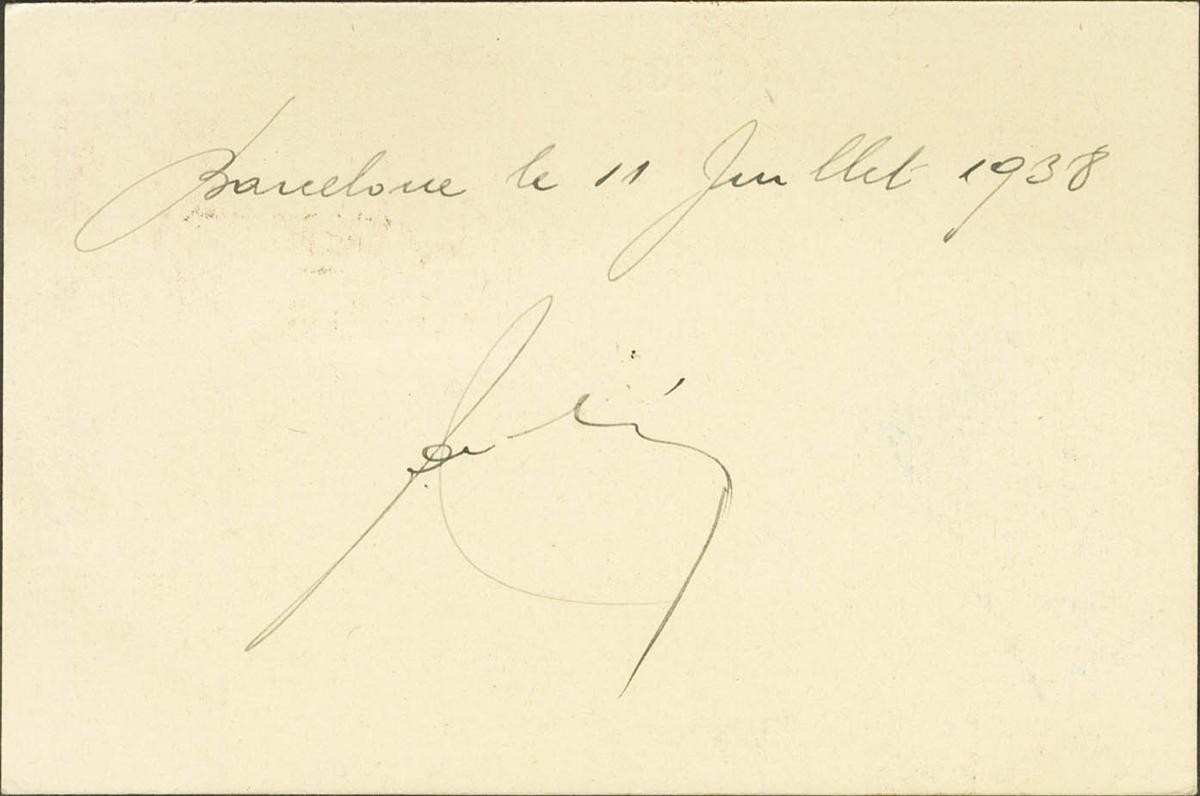 Barcelone le 11 Juillet 1938